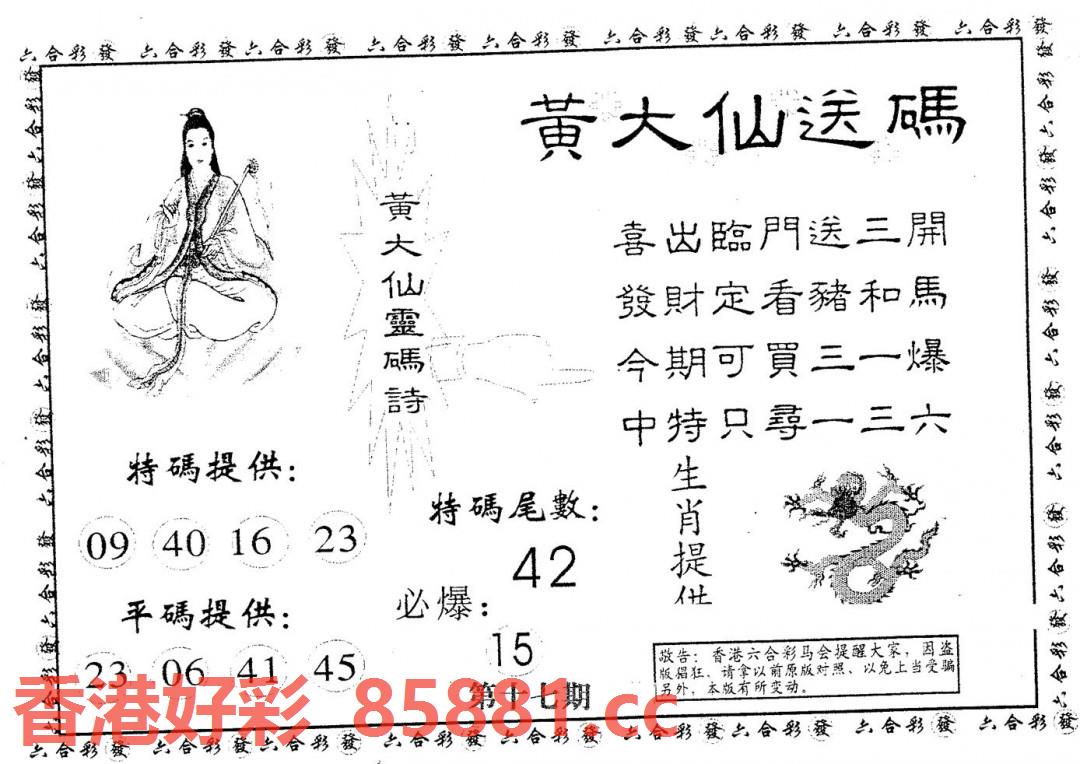 六合彩發 六合彩發 六合彩發 六合彩發 六合彩發 六合彩發 六合彩發 六合彩發 六合彩發
黃大仙送碼
黃大仙靈碼詩
喜出臨門送三開
發財定看豬和馬
今期可買三一爆
中特只尋一三六
特碼提供：
09 40 16 23
平碼提供：
23 06 41 45
特碼尾數：
42
必爆：
15
第十七期
生肖提供
敬告：香港六合彩马会提醒大家，因盗
版猖狂，请拿以前原版对照，以免上当受骗
另外，本版有所变动。
香港好彩 85881.cc
六合彩發 六合彩發 六合彩發 六合彩發 六合彩發 六合彩發 六合彩發 六合彩發 六合彩發